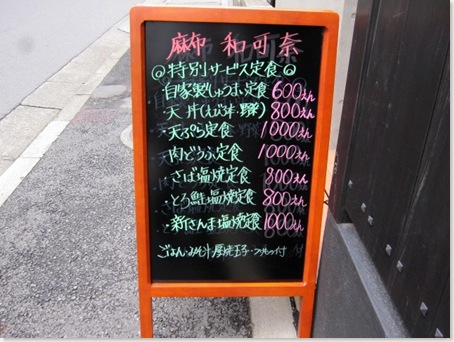 麻布 和可奈
◎特別サービス定食◎
・自家製しゅうまい定食 600えん
・天丼(えび2本・野菜) 800えん
・天ぷら定食 1000えん
・肉どうふ定食 1000えん
・さば塩焼定食 800えん
・とろ鮭塩焼定食 800えん
・新さんま塩焼定食 1000えん
ごはん・みそ汁・厚焼玉子・付